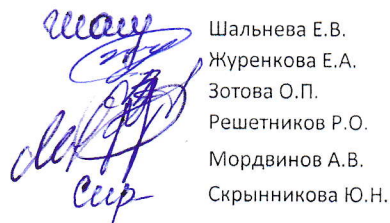 Шальнева Е.В.
Журенкова Е.А.
Зотова О.П.
Решетников Р.О.
Мордвинов А.В.
Скрынникова Ю.Н.